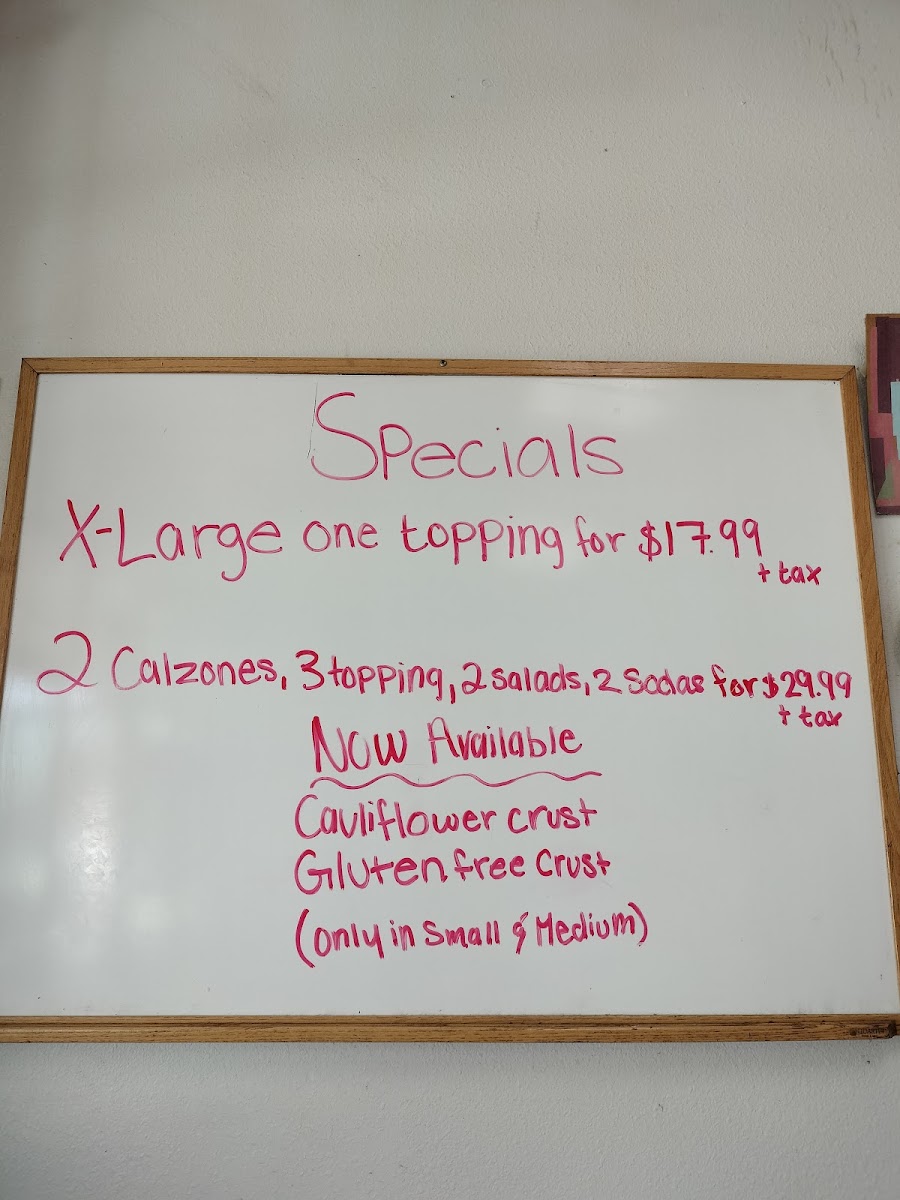 Specials
X-Large one topping for $17.99
+ tax
2 Calzones, 3 topping, 2 salads, 2 Sodas for $29.99
+ tax
Now Available
Cauliflower crust
Gluten free Crust
(only in Small & Medium)